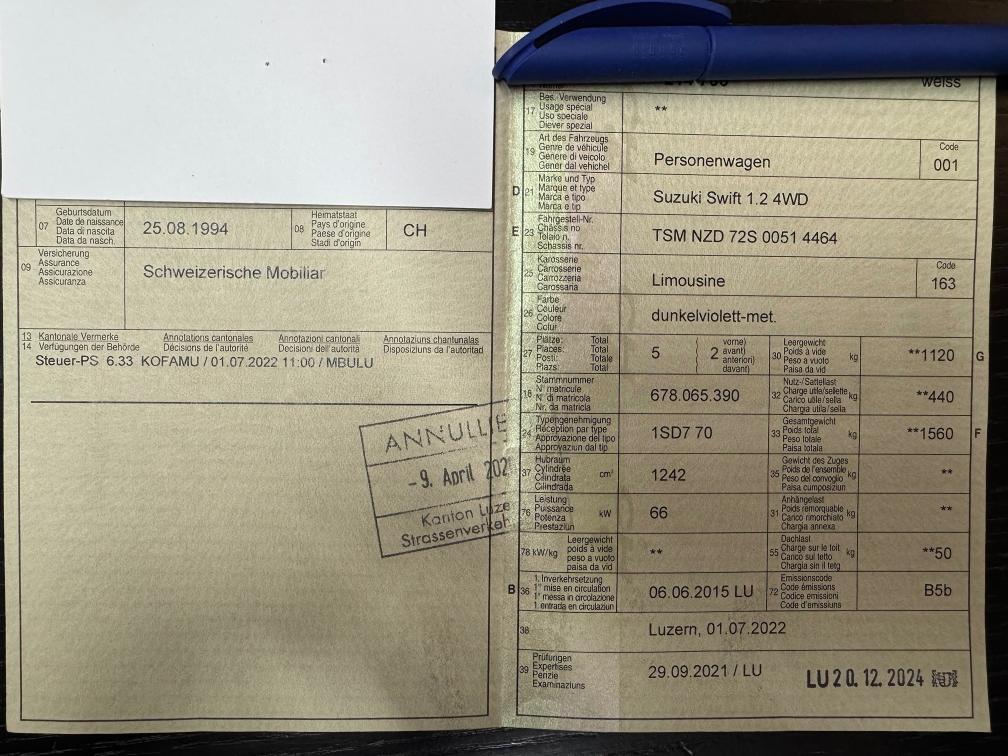 07
Geburtsdatum
Date de naissance
Data di nascita
Data da nasch.
25.08.1994
08
Heimatstaat
Pays d'origine
Paese d'origine
Stadi d'origin
CH
09
Versicherung
Assurance
Assicurazione
Assicuranza
Schweizerische Mobiliar
13 Kantonale Vermerke Annotations cantonales Annotazioni cantonali Annotaziuns chantunalas
14 Verfügungen der Behörde Décisions de l'autorité Decisioni dell'autorità Disposiziuns da l'autoritad
Steuer-PS 6.33 KOFAMU / 01.07.2022 11:00 / MBULU
ANNULLIE
-9. April 202
Kanton Luze
Strassenverkeh
weiss
17
Bes. Verwendung
Usage spécial
Uso speciale
Diever spezial
**
19
Art des Fahrzeugs
Genre de véhicule
Genere di veicolo
Gener dal vehichel
Personenwagen
Code
001
D 21
Marke und Typ
Marque et type
Marca e tipo
Marca e tip
Suzuki Swift 1.2 4WD
E 23
Fahrgestell-Nr.
Châssis no
Telaio n.
Schassis nr.
TSM NZD 72S 0051 4464
25
Karosserie
Carrosserie
Carrozzeria
Carossaria
Limousine
Code
163
26
Farbe
Couleur
Colore
Colur
dunkelviolett-met.
27
Plätze: Total
Places: Total
Posti: Totale
Plazs: Total
5
2
vorne)
avant)
anteriori)
davant)
30
Leergewicht
Poids à vide
Peso a vuoto
Paisa da vid
kg
**1120
G
18
Stammnummer
N° matricule
N° di matricola
Nr. da matricla
678.065.390
32
Nutz-/Sattellast
Charge utile/sellette
Carico utile/sella
Chargia utila/sella
kg
**440
24
Typengenehmigung
Réception par type
Approvazione del tipo
Approvaziun dal tip
1SD7 70
33
Gesamtgewicht
Poids total
Peso totale
Paisa totala
kg
**1560
F
37
Hubraum
Cylindrée
Cilindrata
Cilindrada
cm³
1242
35
Gewicht des Zuges
Poids de l'ensemble
Peso del convoglio
Paisa cumposiziun
kg
**
76
Leistung
Puissance
Potenza
Prestaziun
kW
66
31
Anhängelast
Poids remorquable
Carico rimorchiato
Chargia annexa
kg
**
78 kW/kg
Leergewicht
poids à vide
peso a vuoto
paisa da vid
**
55
Dachlast
Charge sur le toit
Carico sul tetto
Chargia sin il tetg
kg
**50
B 36
1. Inverkehrsetzung
1re mise en circulation
1a messa in circolazione
1. entrada en circulaziun
06.06.2015 LU
72
Emissionscode
Code émissions
Codice emissioni
Code d'emissiuns
B5b
38
Luzern, 01.07.2022
39
Prüfungen
Expertises
Perizie
Examinaziuns
29.09.2021 / LU
LU 20.12.2024